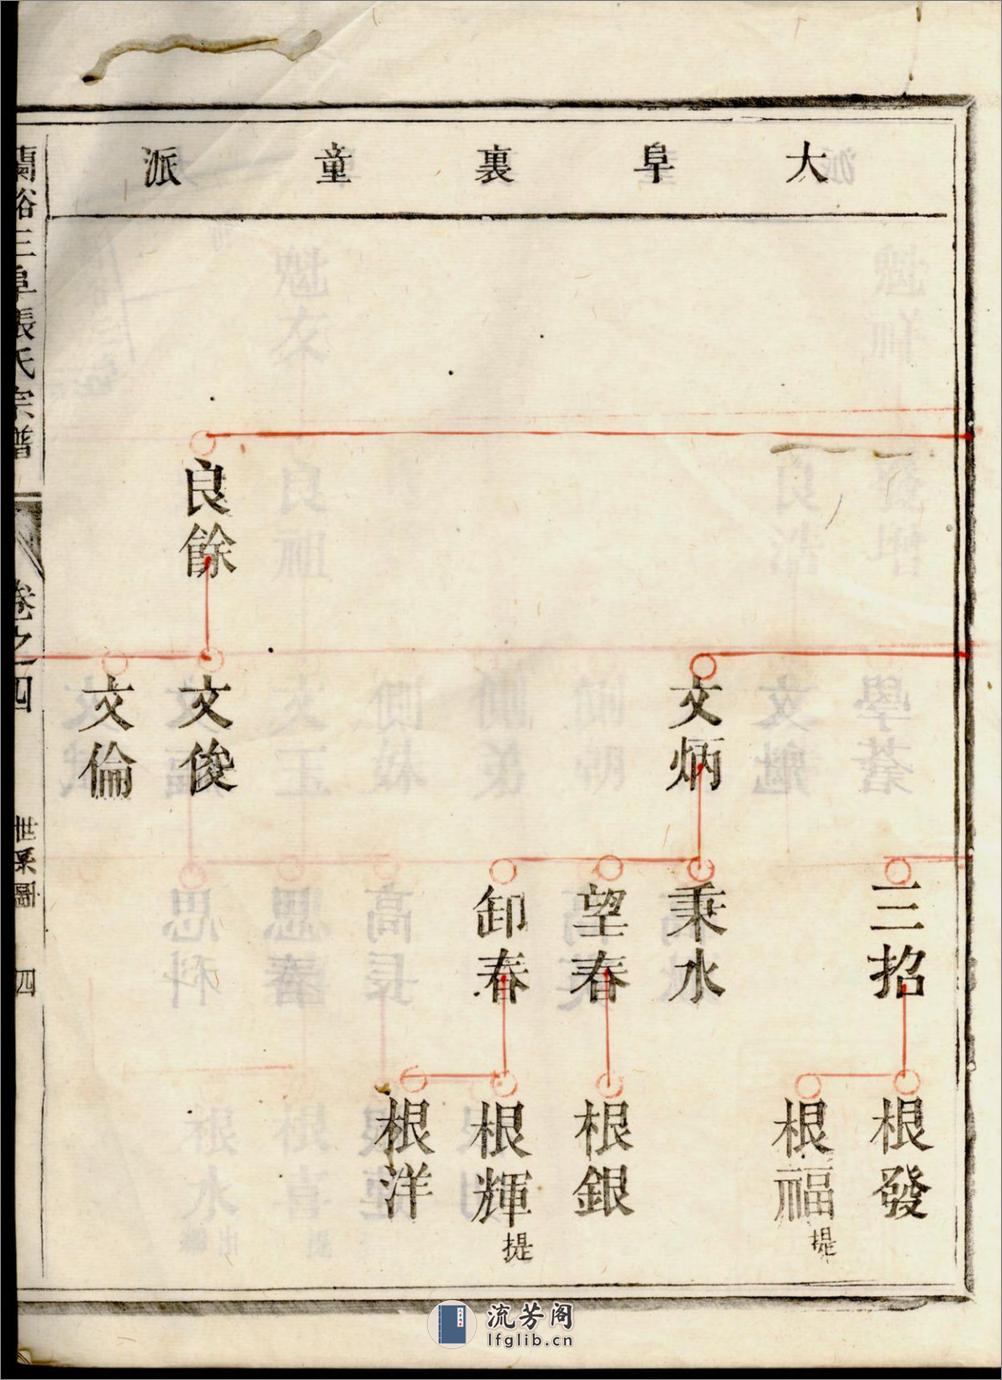 大阜裏童派
良餘
文炳
文俊
文倫
三招
秉水
望春
卸春
根發
根福
提
根銀
根輝
提
根洋
蘭谿三阜張氏宗譜
卷之四
世系圖
四
流芳阁
lfglib.cn